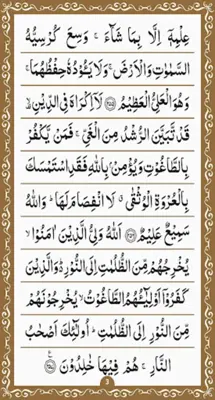 عِلْمِهٖۤ اِلَّا بِمَا شَآءَ ۚ وَسِعَ كُرْسِیُّهُ
السَّمٰوٰتِ وَالْاَرْضَ ۚ وَلَا یَـُٔوْدُهٗ حِفْظُهُمَا ۚ
وَهُوَ الْعَلِیُّ الْعَظِیْمُ ﴿۲۵۵﴾ لَاۤ اِكْرَاهَ فِی الدِّیْنِ ۙ
قَدْ تَّبَیَّنَ الرُّشْدُ مِنَ الْغَیِّ ۚ فَمَنْ یَّكْفُرْ
بِالطَّاغُوْتِ وَیُؤْمِنْۢ بِاللّٰهِ فَقَدِ اسْتَمْسَكَ
بِالْعُرْوَةِ الْوُثْقٰی ۗ لَا انْفِصَامَ لَهَا ؕ وَاللّٰهُ
سَمِیْعٌ عَلِیْمٌ ﴿۲۵۶﴾ اَللّٰهُ وَلِیُّ الَّذِیْنَ اٰمَنُوْا ۙ
یُخْرِجُهُمْ مِّنَ الظُّلُمٰتِ اِلَی النُّوْرِ ؕ۬ وَالَّذِیْنَ
كَفَرُوْۤا اَوْلِیٰٓـُٔهُمُ الطَّاغُوْتُ ۙ یُخْرِجُوْنَهُمْ
مِّنَ النُّوْرِ اِلَی الظُّلُمٰتِ ؕ اُولٰٓئِكَ اَصْحٰبُ
النَّارِ ۚ هُمْ فِیْهَا خٰلِدُوْنَ ﴿۲۵۷﴾
3